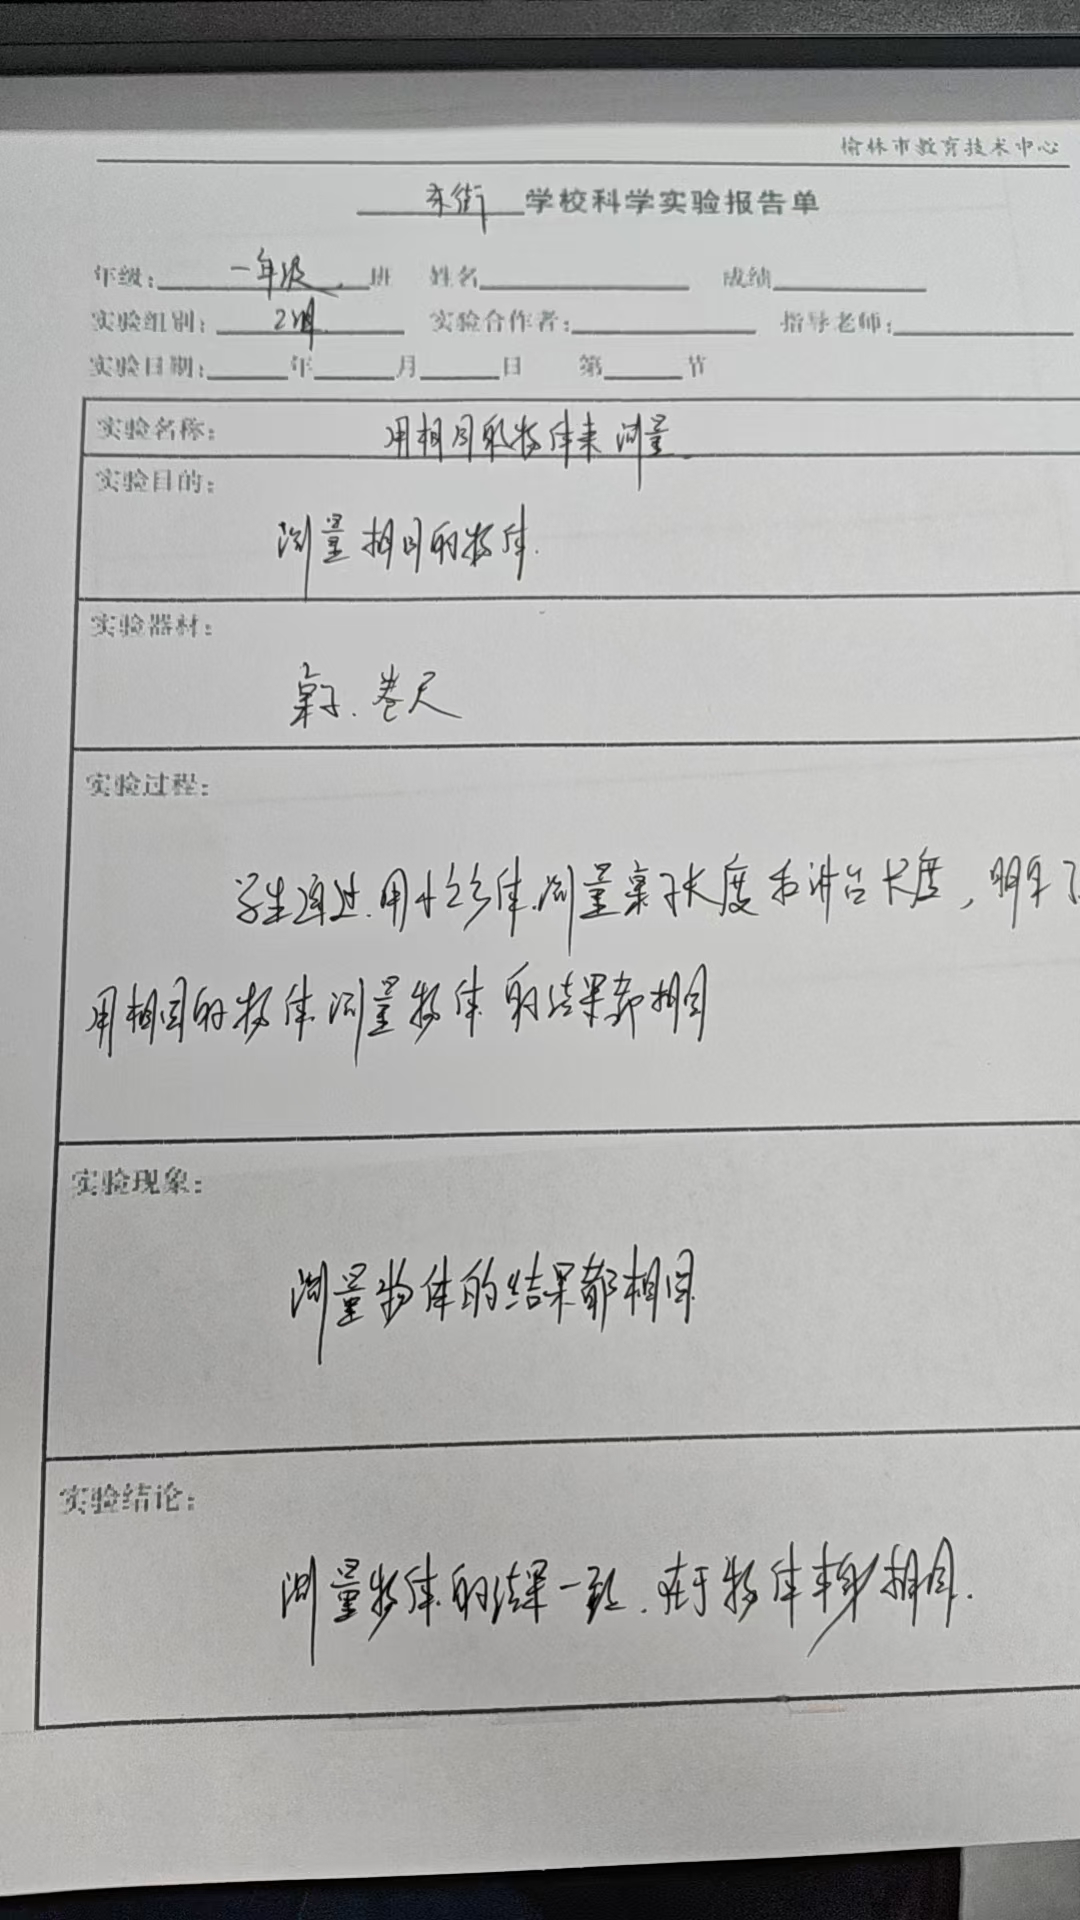 榆林市教育技术中心
东街 学校科学实验报告单
年级：一年级 班 姓名 成绩
实验组别：2组 实验合作者： 指导老师：
实验日期： 年 月 日 第 节
实验名称： 用相同的物体来测量
实验目的：
测量相同的物体.
实验器材：
桌子. 卷尺
实验过程：
学生通过用 体测量桌子长度和讲台长度，明白了
用相同的物体测量物体的结果都相同
实验现象：
测量物体的结果都相同
实验结论：
测量物体的结果一致.在于物体本身相同.